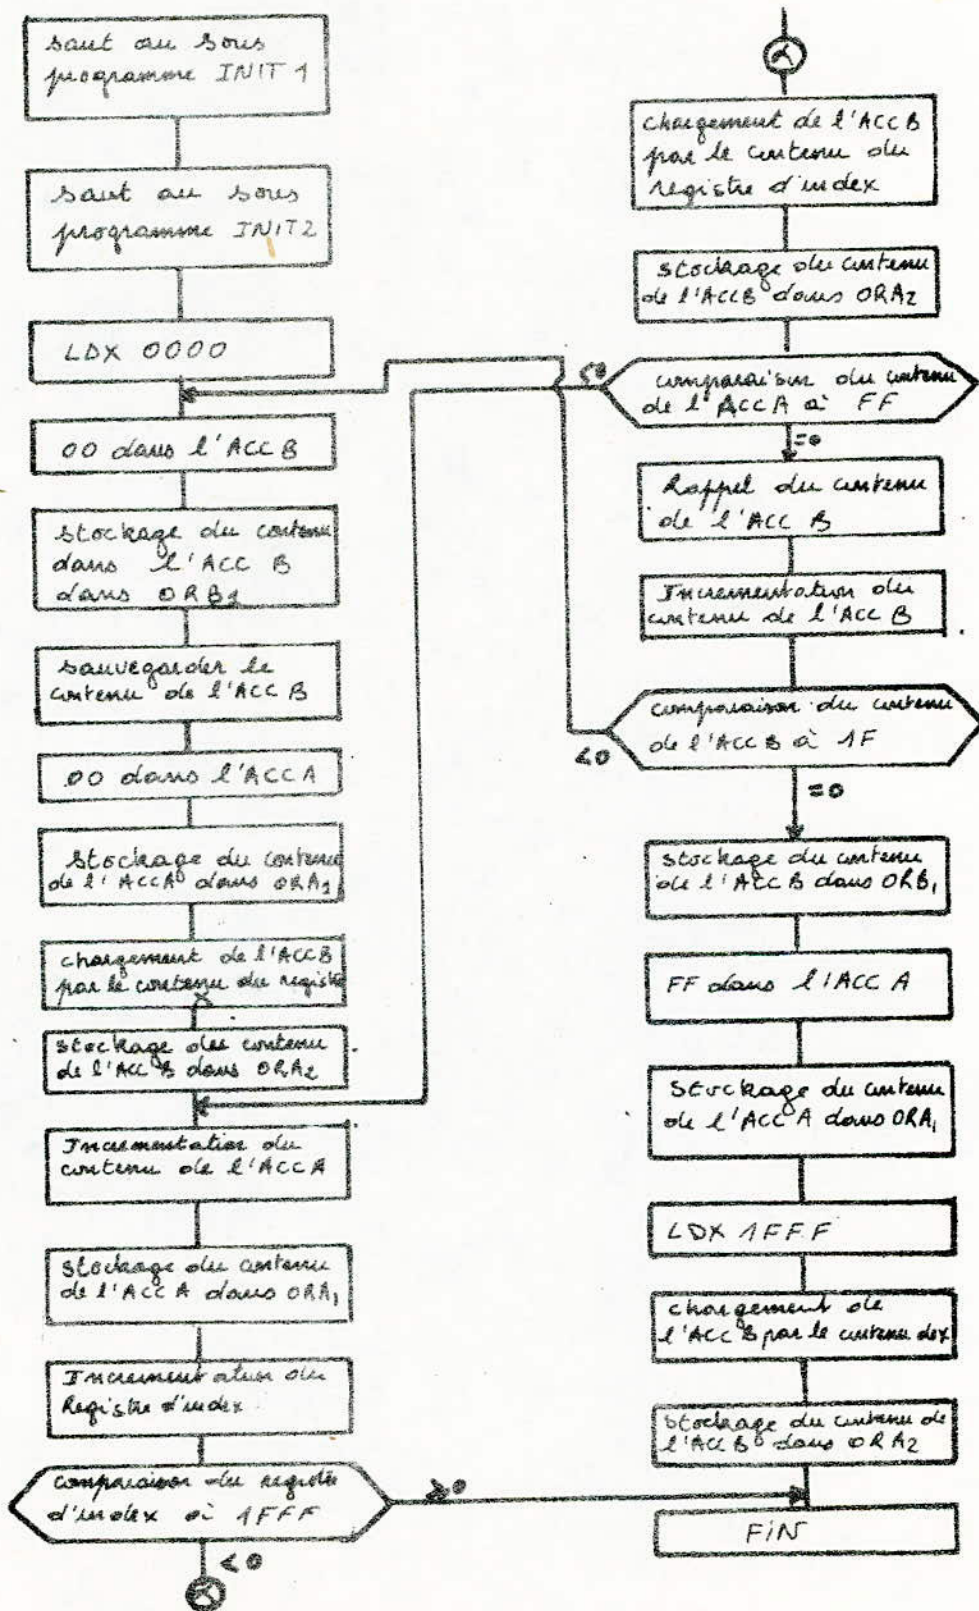 saut au sous
programme INIT 1
saut au sous
programme INIT2
LDX 0000
00 dans l'ACC B
stockage du contenu
dans l'ACC B
dans ORB1
sauvegarder le
contenu de l'ACC B
00 dans l'ACC A
stockage du contenu
de l'ACCA dans ORA1
chargement de l'ACCB
par le contenu du registre
X
stockage des contenu
de l'ACC B dans ORA2
Incrementation du
contenu de l'ACC A
stockage du contenu
de l'ACC A dans ORA1
Incrementation du
Registre d'index
comparaison du registre
d'index à 1FFF
≥0
<0
α
α
chargement de l'ACC B
par le contenu du
registre d'index
stockage du contenu
de l'ACCB dans ORA2
<0
comparaison du contenu
de l'ACCA à FF
=0
Rappel du contenu
de l'ACC B
Incrementation du
contenu de l'ACC B
comparaison du contenu
de l'ACCB à 1F
<0
=0
stockage du contenu
de l'ACC B dans ORB1
FF dans l'ACC A
stockage du contenu
de l'ACC A dans ORA1
LDX 1FFF
chargement de
l'ACC B par le contenu dex
stockage du contenu de
l'ACCB dans ORA2
FIN